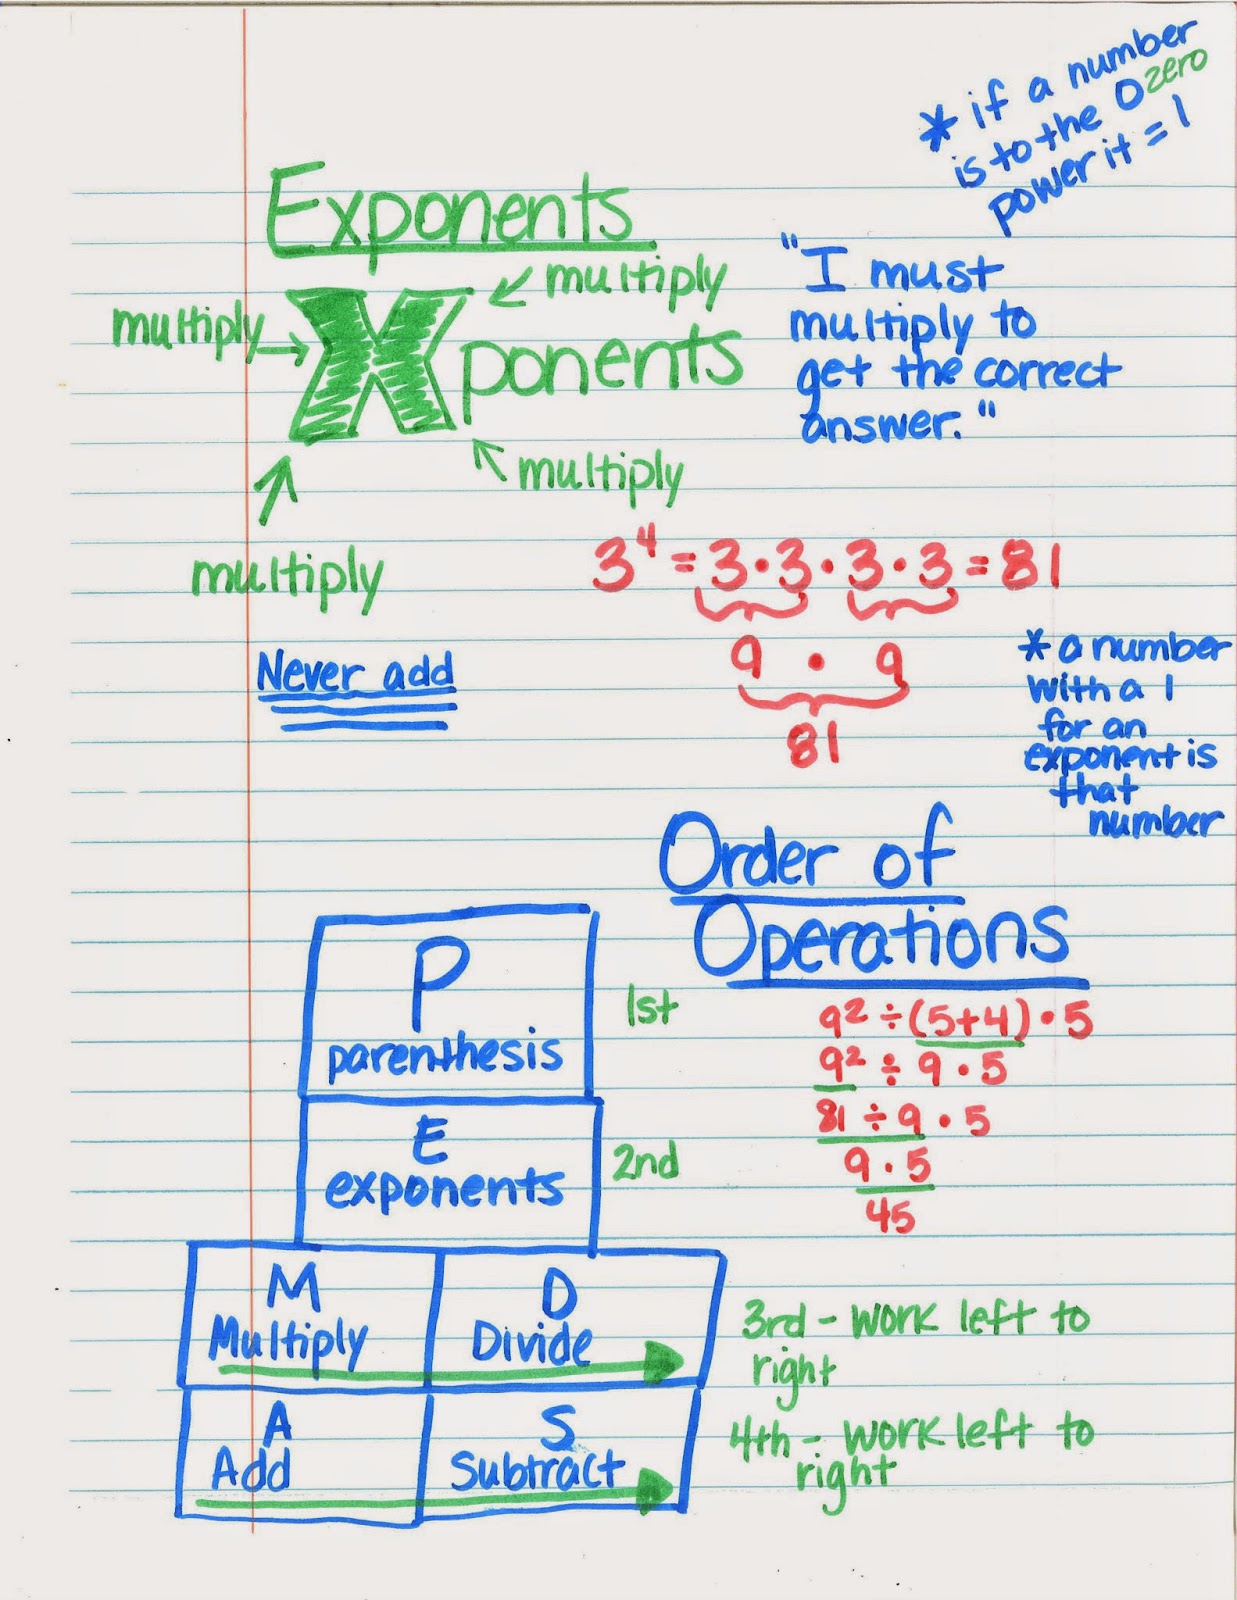 * if a number
is to the 0 zero
power it = 1
Exponents
multiply
multiply
Xponents
multiply
multiply
"I must
multiply to
get the correct
answer."
3⁴ = 3 · 3 · 3 · 3 = 81
9 · 9
81
Never add
* a number
with a 1
for an
exponent is
that
number
Order of
Operations
P
parenthesis
1st
E
exponents
2nd
9² ÷ (5+4) · 5
9² ÷ 9 · 5
81 ÷ 9 · 5
9 · 5
45
M
Multiply
D
Divide
3rd - work left to
right
A
Add
S
Subtract
4th - work left to
right